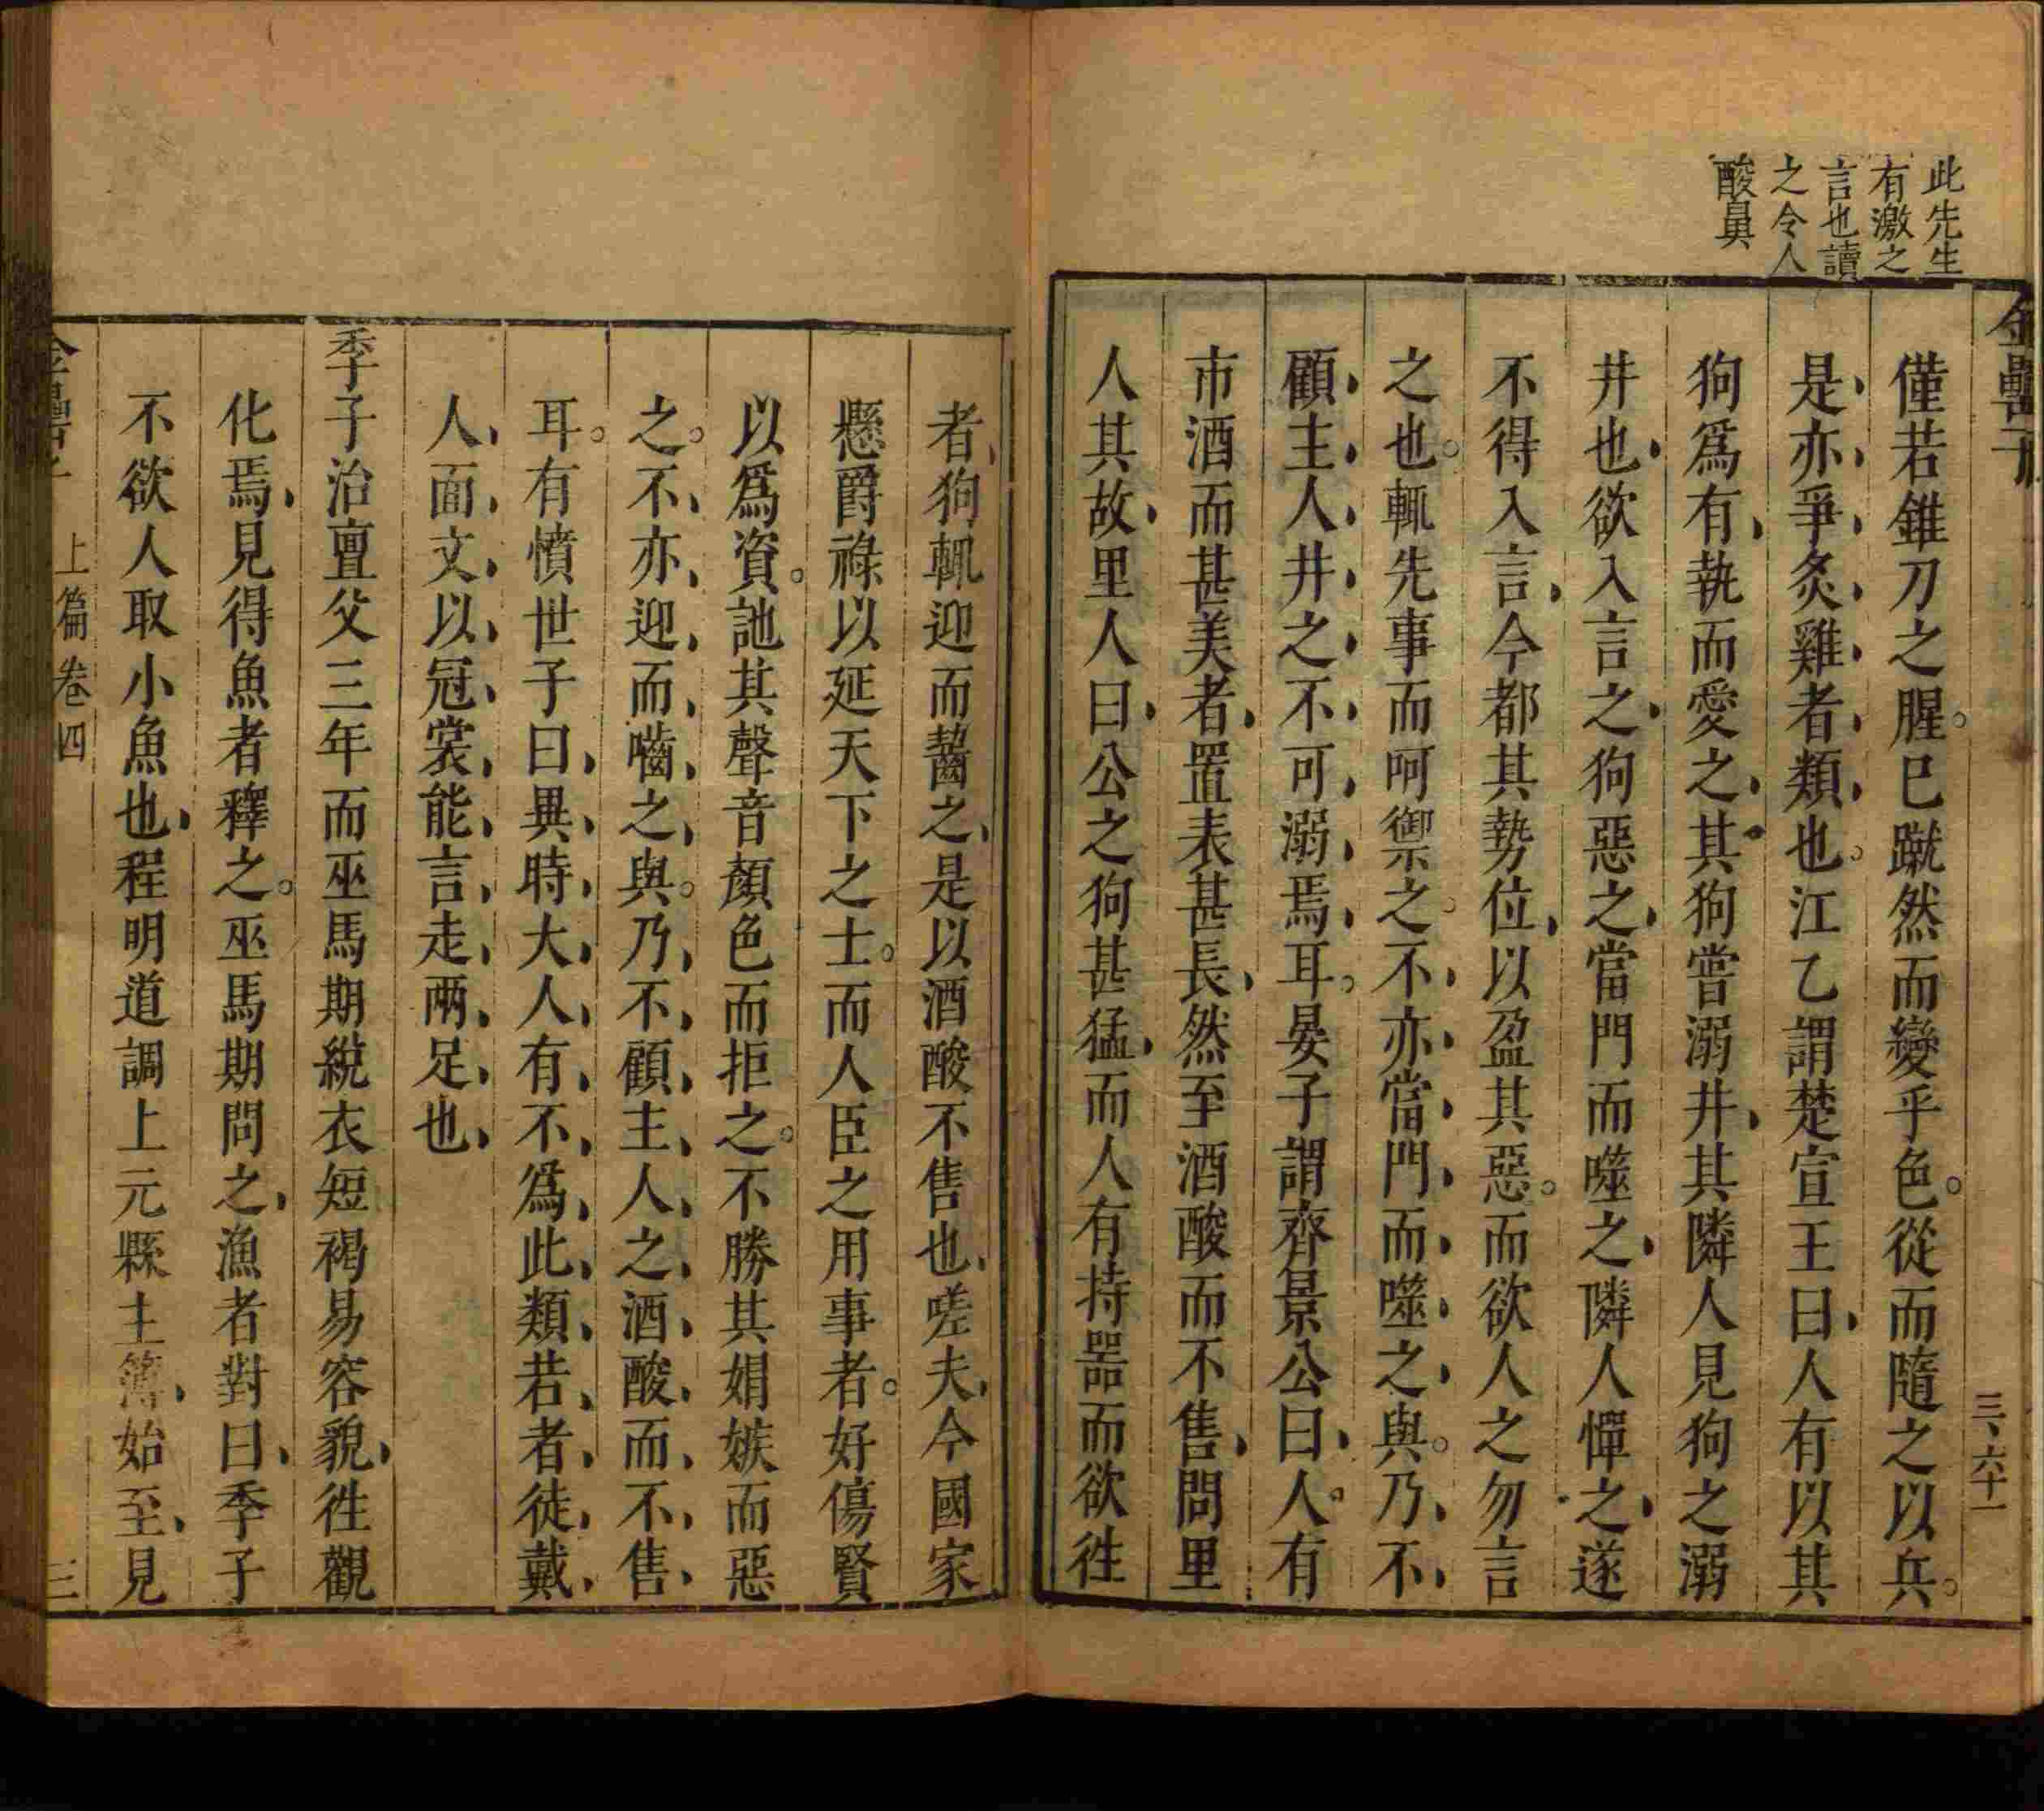 此先生
有激之
言也讀
之令人
酸鼻
金罍子
三、六十一
僅若錐刀之腥。巳蹴然而變乎色。從而隨之以兵。
是亦爭炙雞者類也。江乙謂楚宣王曰、人有以其
狗爲有、執而愛之、其狗嘗溺井、其隣人見狗之溺
井也、欲入言之、狗惡之、當門而噬之、隣人憚之、遂
不得入言、今都其勢位、以盈其惡。而欲人之勿言
之也。輒先事而呵禦之。不亦當門而噬之與。乃不
顧主人井之不可溺焉耳。晏子謂齊景公曰、人。有
市酒而甚美者、置表甚長、然至酒酸而不售、問里
人其故、里人曰、公之狗甚猛、而人有持器而欲徃
者、狗輒迎而齧之、是以酒酸不售也、嗟夫、今國家
懸爵祿以延天下之士。而人臣之用事者。好傷賢
以爲資。訑其聲音顏色而拒之。不勝其娟嫉而惡
之。不亦迎而嚙之與。乃不顧主人之酒酸而不售
耳。有憤世子曰、異時大人有不爲此類若者、徒戴
人面文以冠裳能言走兩足也、
季子治亶父三年而巫馬期絻衣短褐易容貌、徃觀
化焉、見得魚者釋之。巫馬期問之、漁者對曰、季子
不欲人取小魚也、程明道調上元縣主簿、始至、見
金罍子
上篇卷四
三